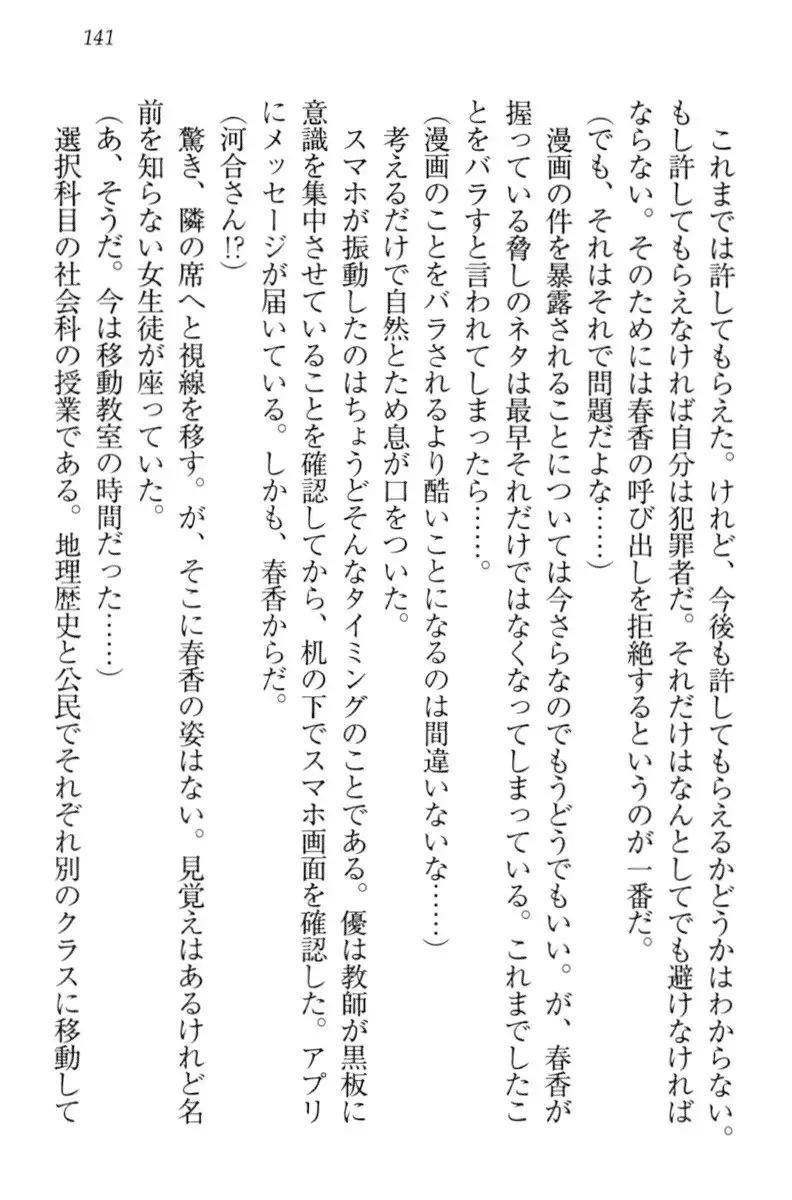 141
これまでは許してもらえた。けれど、今後も許してもらえるかどうかはわからない。
もし許してもらえなければ自分は犯罪者だ。それだけはなんとしてでも避けなければ
ならない。そのためには春香の呼び出しを拒絶するというのが一番だ。
(でも、それはそれで問題だよな……)
漫画の件を暴露されることについては今さらなのでもうどうでもいい。が、春香が
握っている脅しのネタは最早それだけではなくなってしまっている。これまでしたこ
とをバラすと言われてしまったら……。
(漫画のことをバラされるより酷いことになるのは間違いないな……)
考えるだけで自然とため息が口をついた。
スマホが振動したのはちょうどそんなタイミングのことである。優は教師が黒板に
意識を集中させていることを確認してから、机の下でスマホ画面を確認した。アプリ
にメッセージが届いている。しかも、春香からだ。
(河合さん!?)
驚き、隣の席へと視線を移す。が、そこに春香の姿はない。見覚えはあるけれど名
前を知らない女生徒が座っていた。
(あ、そうだ。今は移動教室の時間だった……)
選択科目の社会科の授業である。地理歴史と公民でそれぞれ別のクラスに移動して